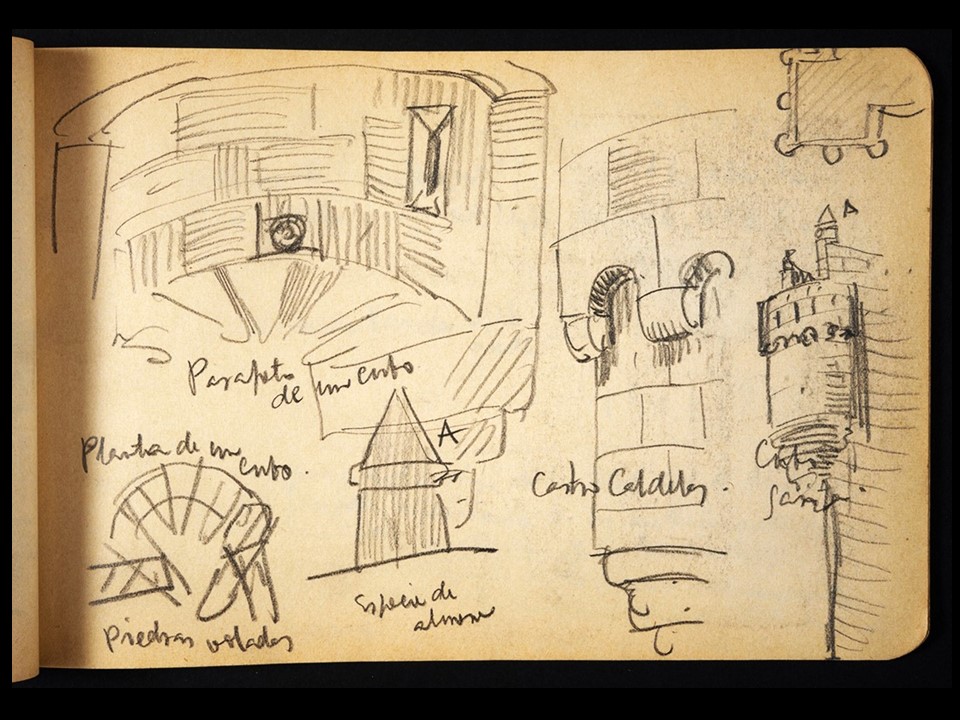 Parapeto
de un cubo
Planta de un
cubo.
A
Castro Caldelas.
A
Cubo
Garita.
Especie de
almena
Piedras voladas